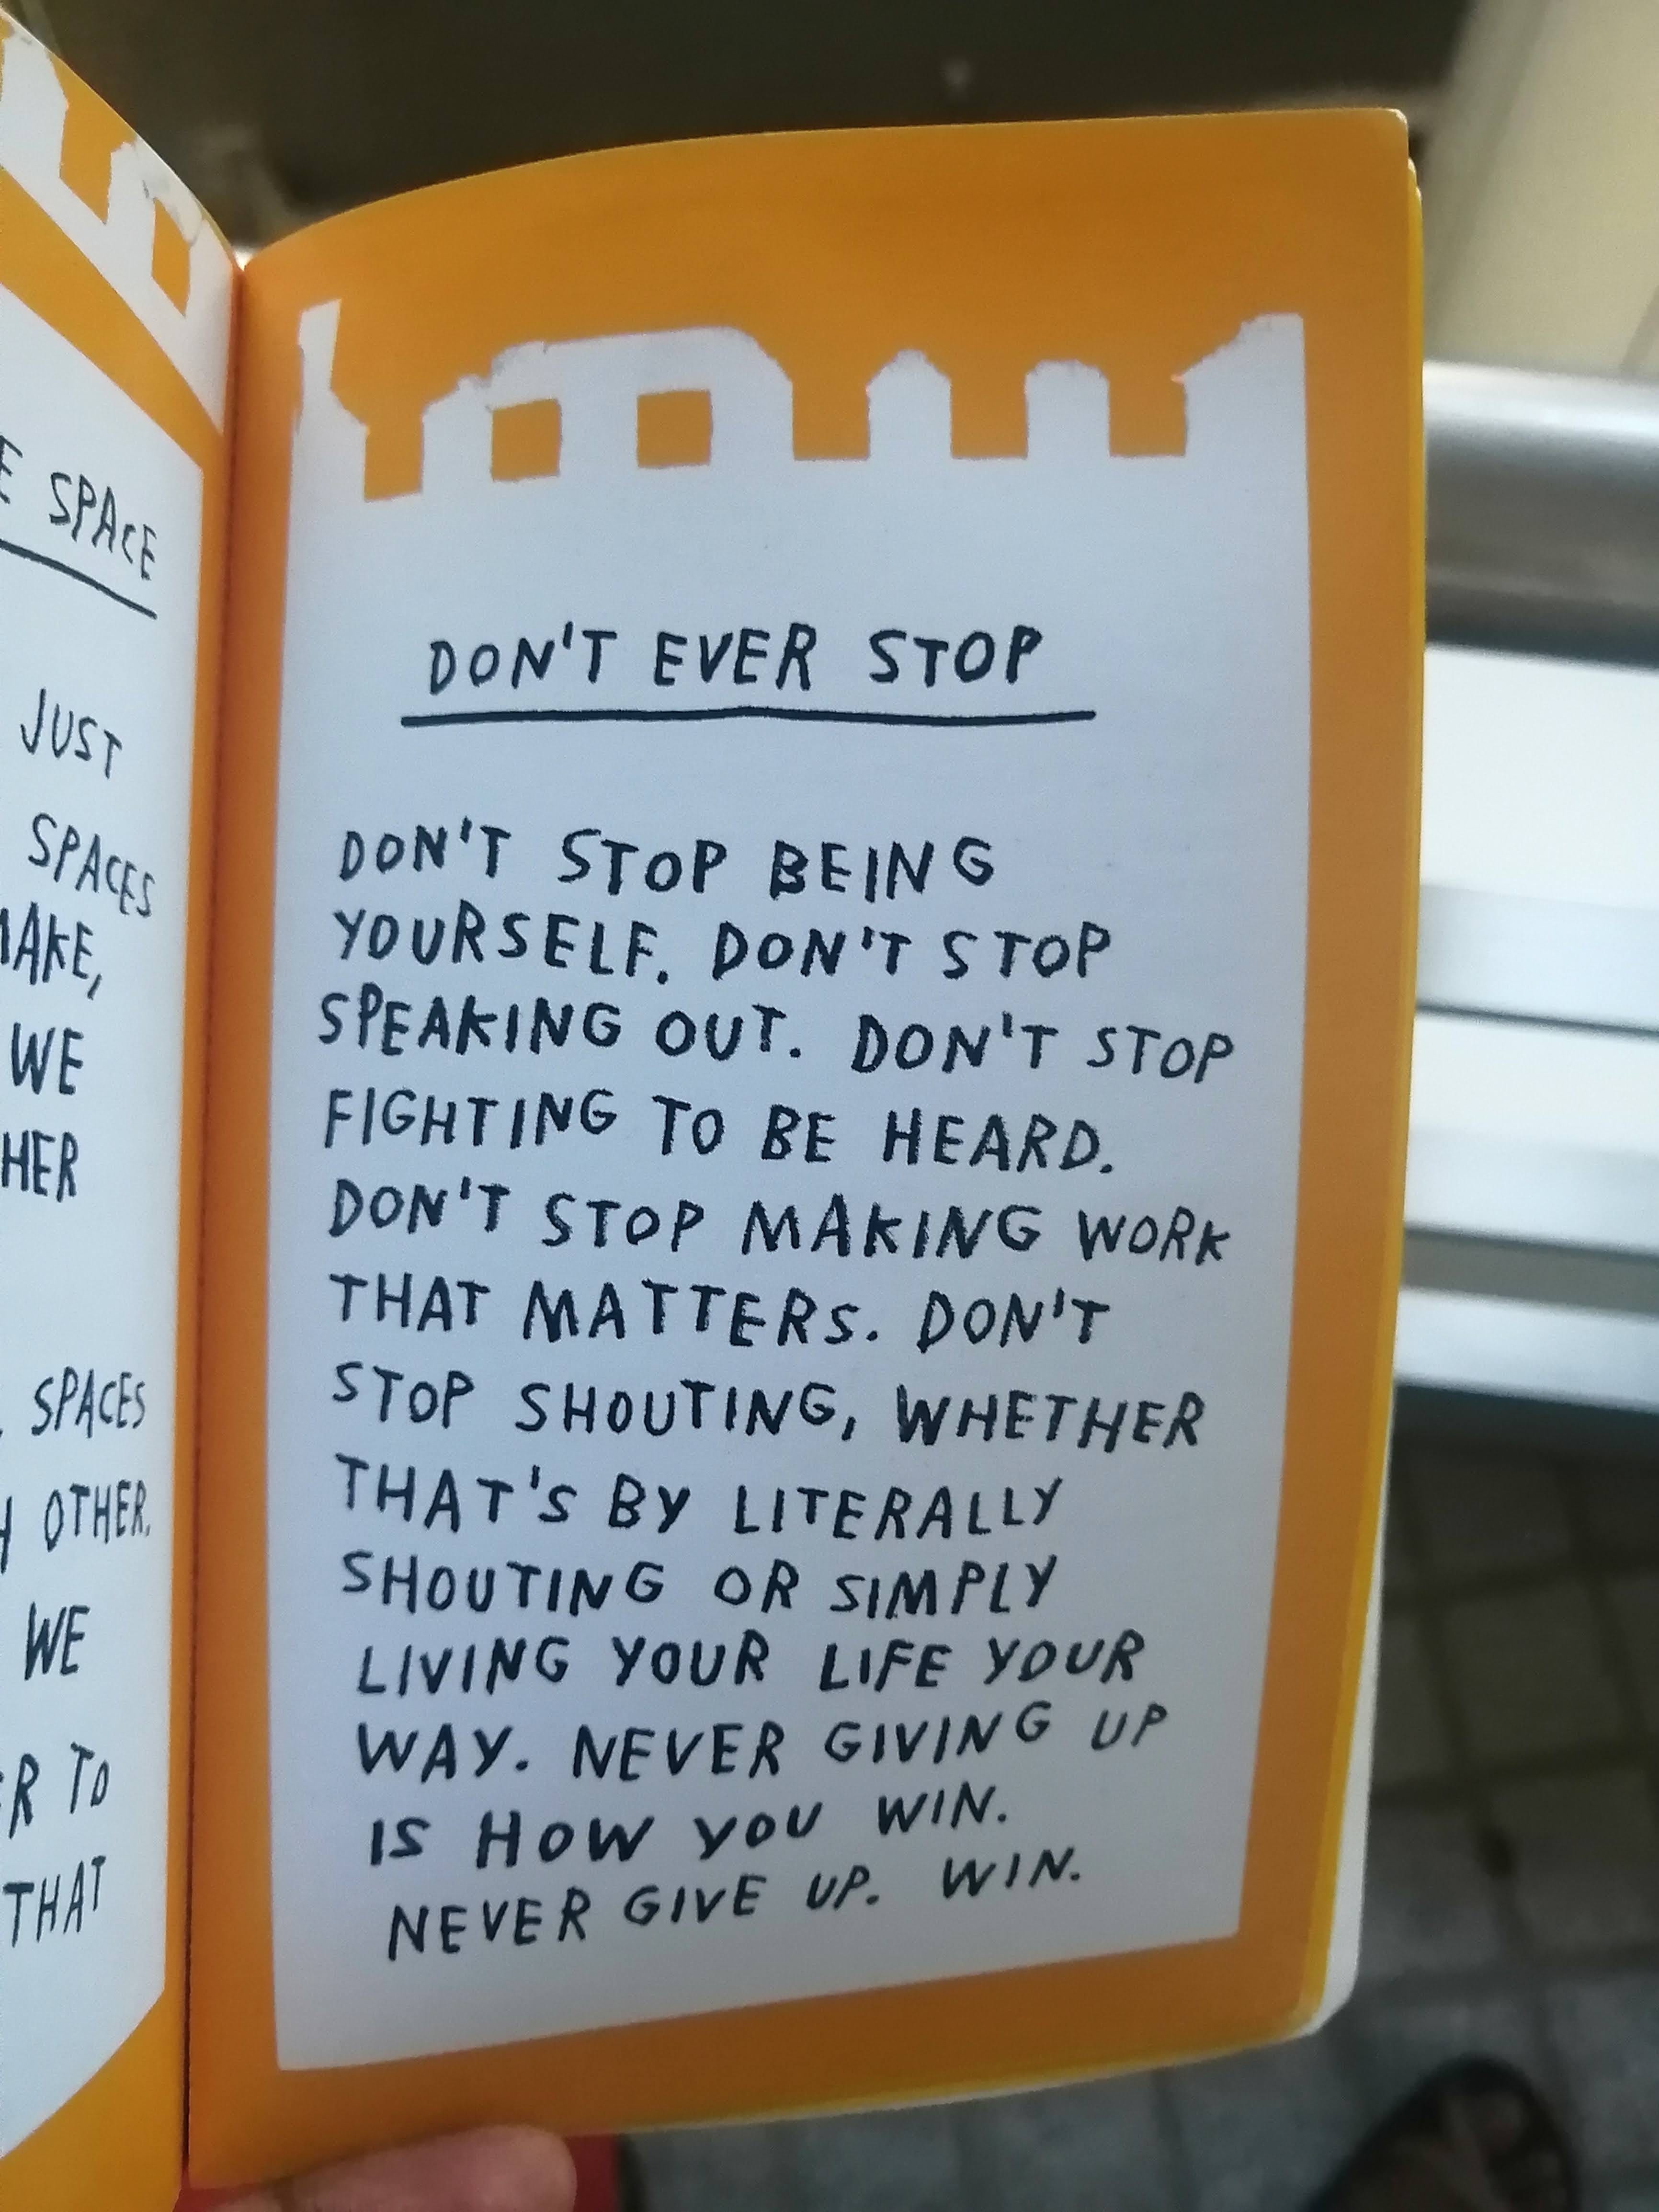 E SPACE
JUST
SPACES
MAKE,
WE
HER
SPACES
OTHER.
WE
R TO
THAT
DON'T EVER STOP
DON'T STOP BEING
YOURSELF. DON'T STOP
SPEAKING OUT. DON'T STOP
FIGHTING TO BE HEARD.
DON'T STOP MAKING WORK
THAT MATTERS. DON'T
STOP SHOUTING, WHETHER
THAT'S BY LITERALLY
SHOUTING OR SIMPLY
LIVING YOUR LIFE YOUR
WAY. NEVER GIVING UP
IS HOW YOU WIN.
NEVER GIVE UP. WIN.